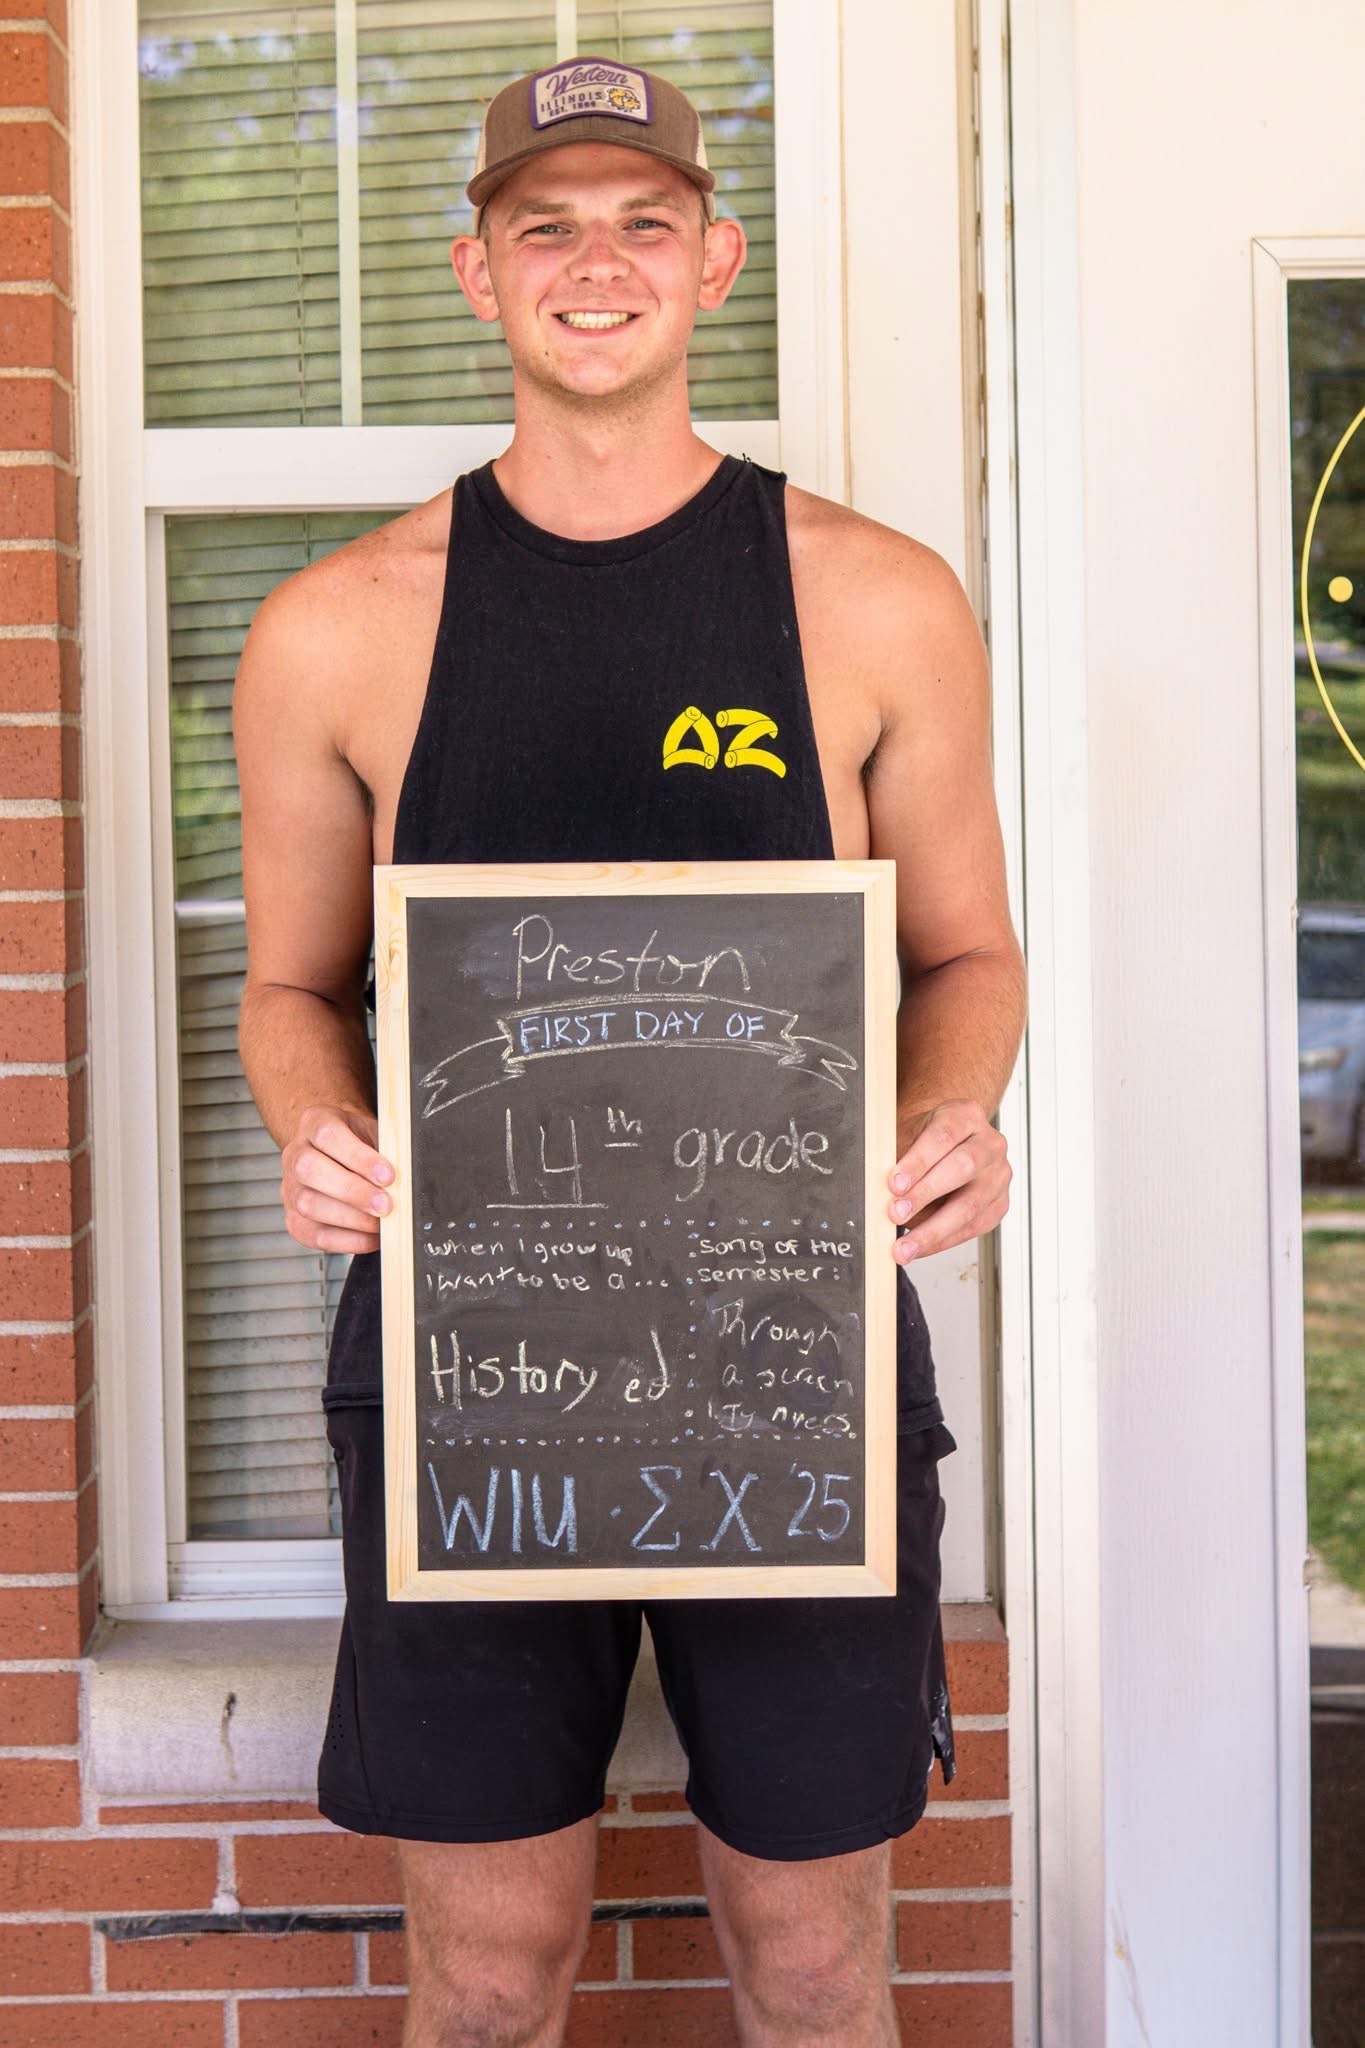 Western
ILLINOIS
EST. 1899
ΔΖ
Preston
FIRST DAY OF
14th grade
when I grow up
I want to be a...
History ed
song of the
semester:
Through
a screen
Ty myers
WIU · Σ Χ '25